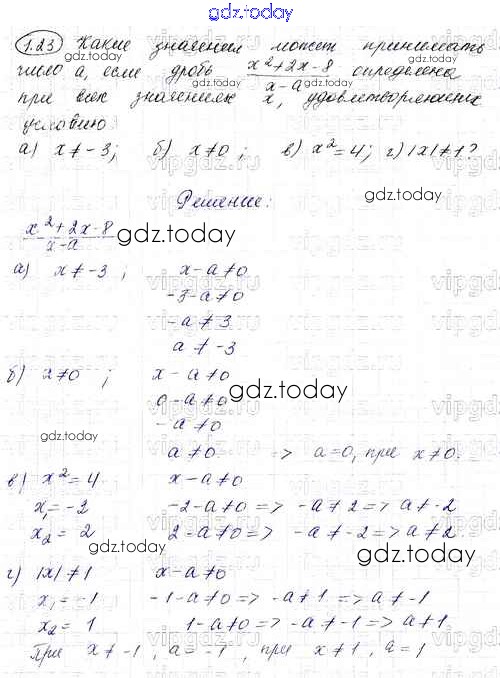 gdz.today
1.23 Какие значения может принимать
число a, если дробь x²+2x-8/x-a определена
при всех значениях x, удовлетворяющих
условию:
а) x≠-3; б) x≠0; в) x²=4; г) |x|≠1?
Решение:
x²+2x-8/x-a
gdz.today
а) x≠-3; x-a≠0
-3-a≠0
-a≠3
a≠-3
б) x≠0; x-a≠0
gdz.today
0-a≠0
-a≠0
gdz.today
a≠0 => a=0, при x≠0.
в) x²=4 x-a≠0
x₁=-2 -2-a≠0=> -a≠2=> a≠-2
x₂=2 2-a≠0=> -a≠-2=> a≠2.
gdz.today
gdz.today
г) |x|≠1 x-a≠0
x₁=-1 -1-a≠0=> -a≠1=> a≠-1
x₂=1 1-a≠0=> -a≠-1=> a≠1
При x≠-1, a=-1, при x≠1, a=1